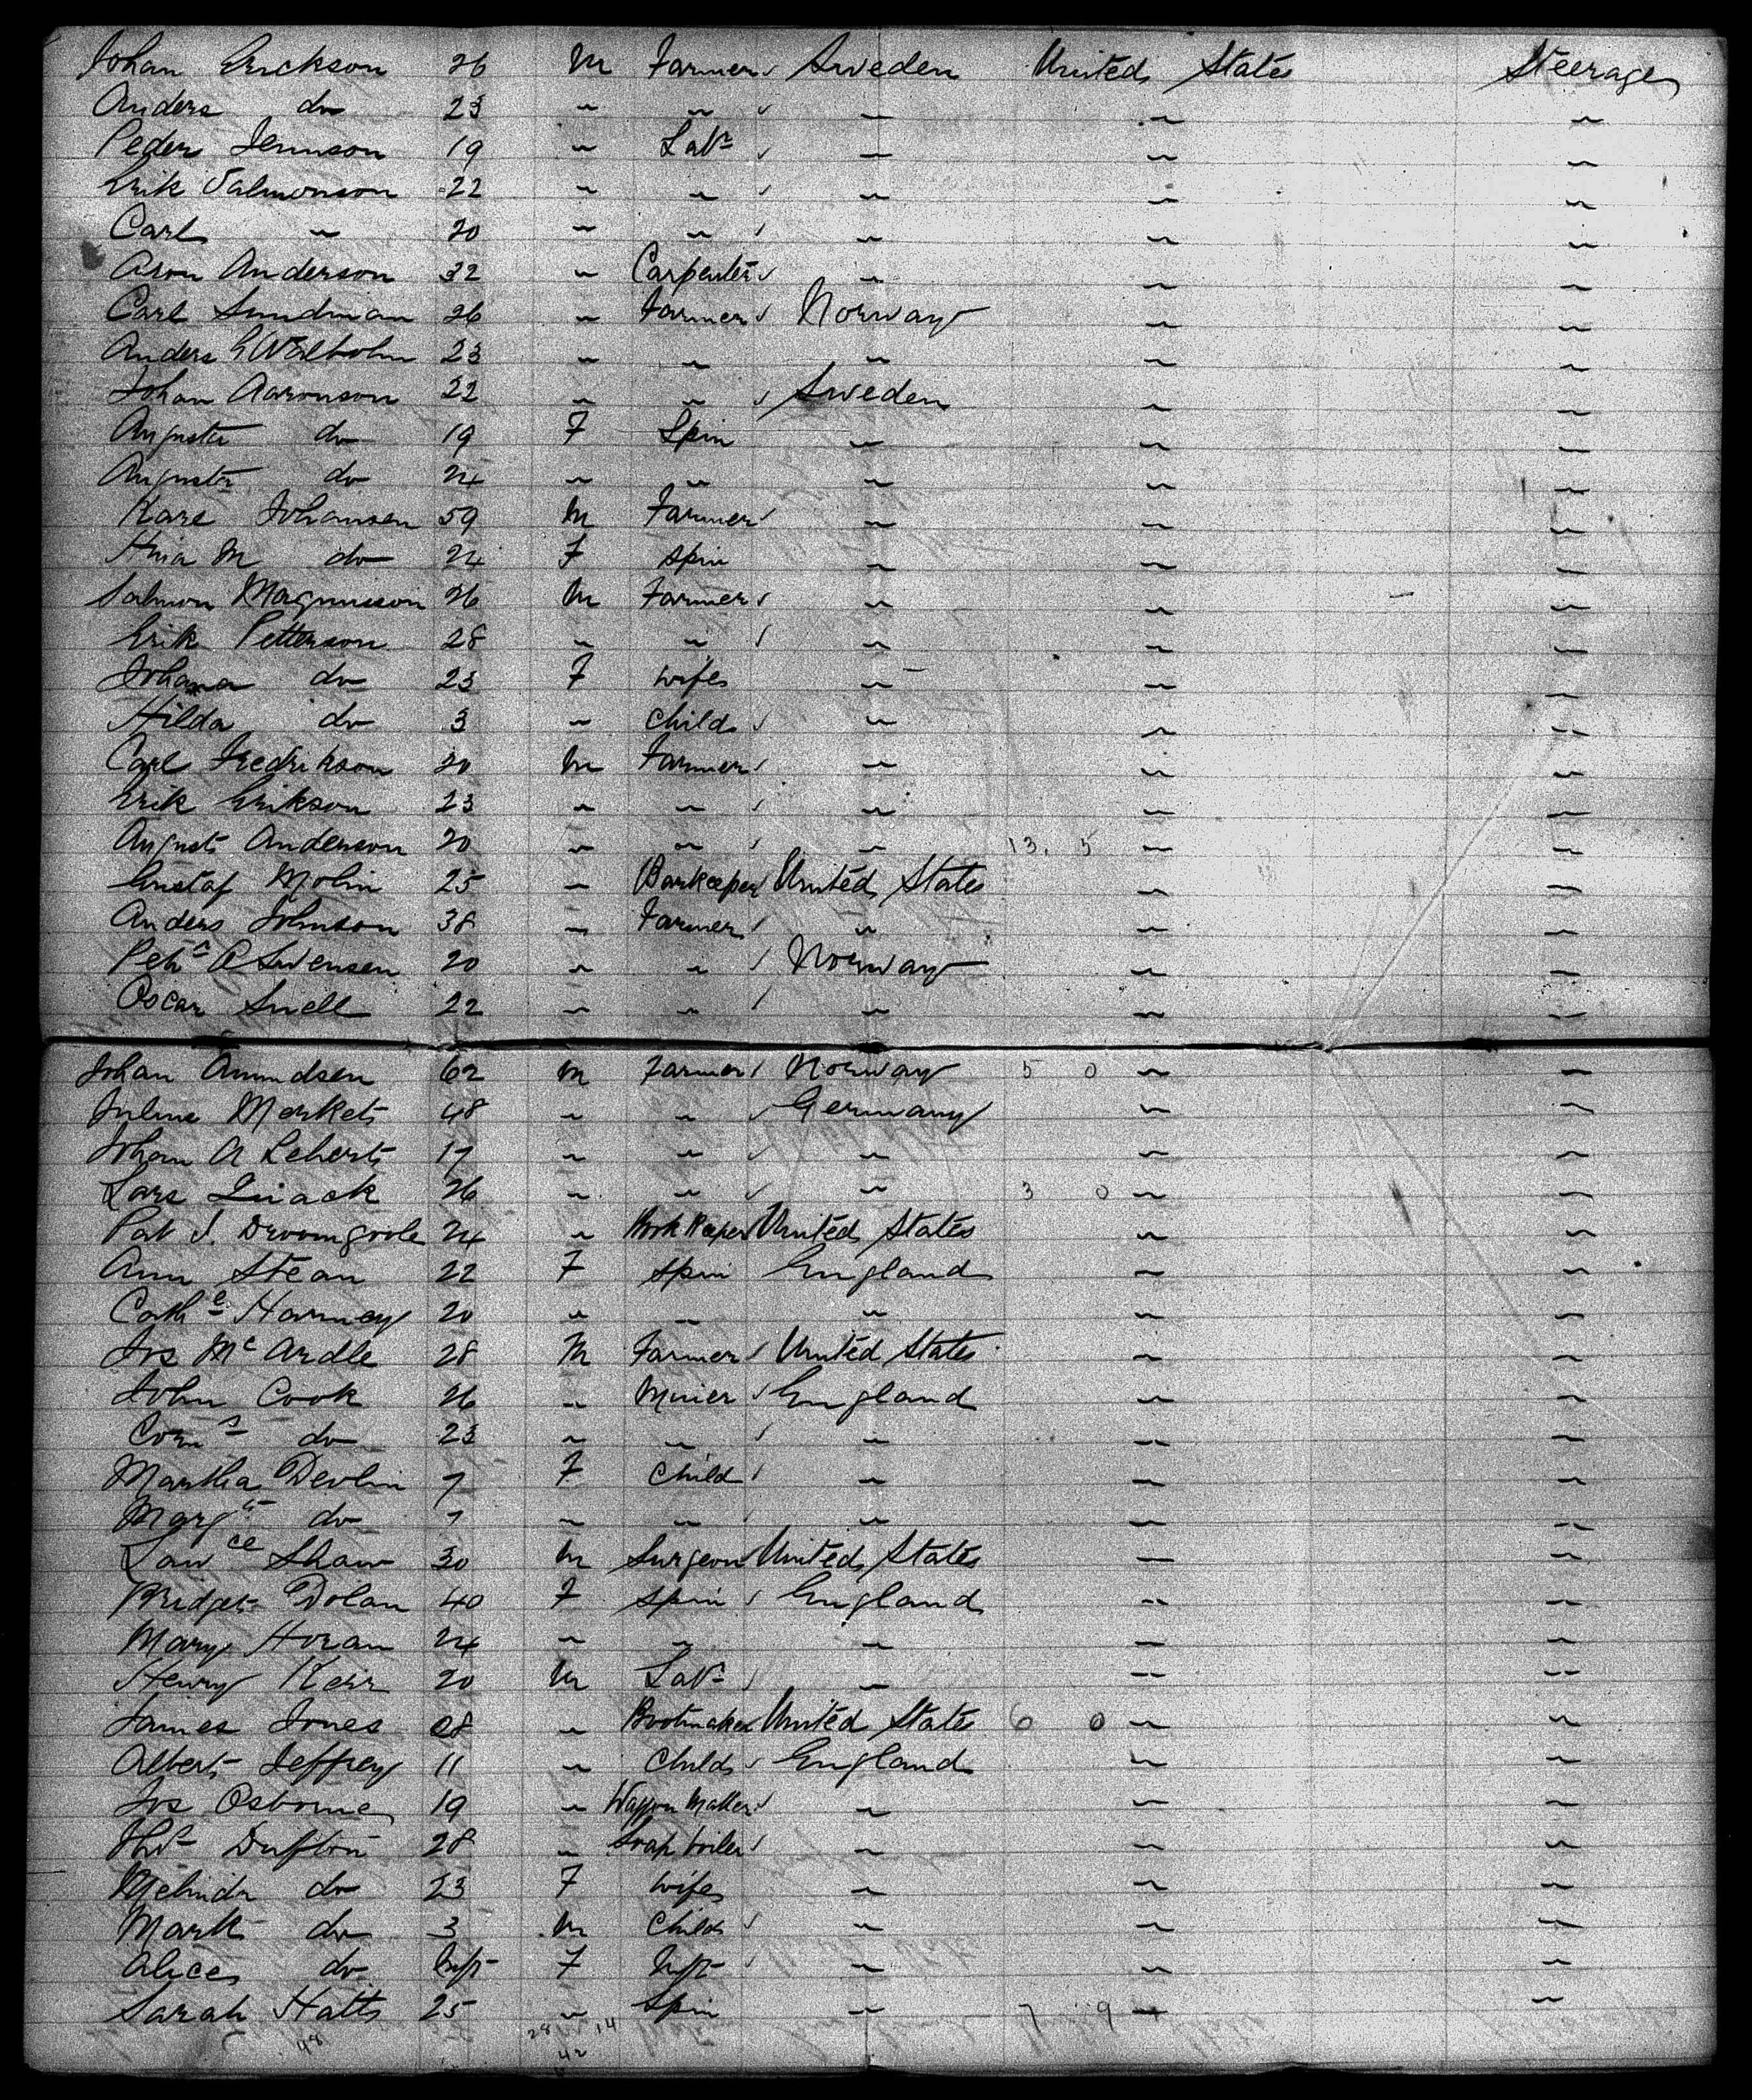 Johan Erickson 26 M Farmer Sweden United States Steerage
Anders do 23 " " " " "
Peder Jennson 19 " Labr " " "
Erik Salmonson 22 " " " " "
Carl " 20 " " " " "
Aron Anderson 32 " Carpenter " " "
Carl Sundman 26 " Farmer Norway " "
Anders G Walbohm 23 " " " " "
Johan Aaronson 22 " " Sweden " "
Augusta do 19 F Spin " " "
Augusta do 24 " " " " "
Karl Johansen 59 M Farmer " " "
M do 24 F Spin " " "
Salmon Magnusson 26 M Farmer " " "
Erik Petterson 28 " " " " "
Johana do 23 F Wife " " "
Hilda do 3 " Child " " "
Carl Fredrikson 20 M Farmer " " "
Erik Erikson 23 " " " " "
August Anderson 20 " " " 13. 5 " "
Gustaf Molin 25 " Barkeeper United States " "
Anders Johnson 38 " Farmer " " "
Petr A Swensen 20 " " Norway " "
Oscar Snell 22 " " " " "
Johan Amundsen 62 M Farmer Norway 5 0 " "
Julius Merket 48 " " Germany " "
Johan A Lebert 17 " " " " "
Lars 26 " " " 3 0 " "
Pat J. Droomgoole 24 " Book Keeper United States " "
Ann Stean 22 F Spin England " "
Cathe Harney 20 " " " " "
Jos McArdle 28 M Farmer United States " "
John Cook 26 " Miner England " "
Corns do 23 " " " " "
Martha Devlin 7 F Child " " "
Margt do 7 " " " " "
Lawce Shaw 30 M Surgeon United States " "
Bridget Dolan 40 F Spin England " "
Mary Horan 24 " " " " "
Henry Kerr 20 M Labr " " "
James Jones 28 " Bootmaker United States 6 0 " "
Albert Jeffrey 11 " Child England " "
Jos Osborne 19 " Waggon Maker " " "
Thos Dufton 28 " Soap boiler " " "
Melinda do 23 F Wife " " "
Mark do 3 M Child " " "
Alice do Inft F Inft " " "
Sarah Hatts 25 " Spin " 7 9 " "
48 28 14
42